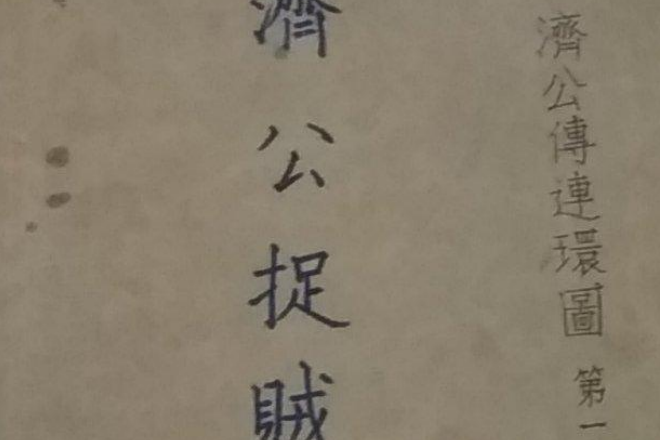 濟公傳連環圖 第一
濟公捉賊